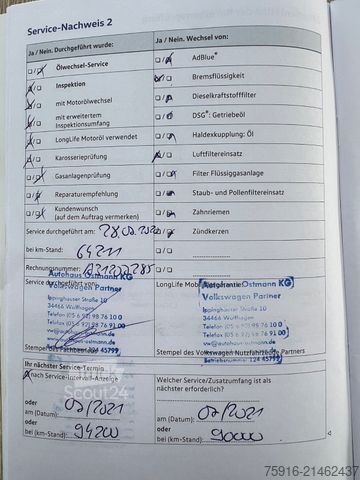 Service-Nachweis 2
Ja / Nein. Durchgeführt wurde:
Ölwechsel-Service
Inspektion
mit Motorölwechsel
mit erweitertem
Inspektionsumfang
LongLife Motoröl verwendet
Karosserieprüfung
Gasanlagenprüfung
Reparaturempfehlung
Kundenwunsch
(auf dem Auftrag vermerken)
Service durchgeführt am: 28.07.2020
bei km-Stand: 64211
Rechnungsnummer:
Service durchgeführt von:
Autohaus Ostmann KG
Volkswagen Partner
Ippinghäuser Straße 10
34466 Wolfhagen
Telefon (05 6 92) 98 76 10 0
Stempel des Fachbetriebs
Betriebsnummer: 124 45799
Ja / Nein. Wechsel von:
AdBlue®
Bremsflüssigkeit
Dieselkraftstofffilter
DSG®: Getriebeöl
Haldexkupplung: Öl
Luftfiltereinsatz
Filter Flüssiggasanlage
Staub- und Pollenfiltereinsatz
Zahnriemen
Zündkerzen
LongLife Mobilitätsgarantie:
Autohaus Ostmann KG
Volkswagen Partner
Ippinghäuser Straße 10
34466 Wolfhagen
Telefon (05 6 92) 98 76 10 0
Stempel des Volkswagen Nutzfahrzeuge Partners
Betriebsnummer: 124 45799
Ihr nächster Service-Termin
nach Service-Intervall-Anzeige
oder
am (Datum): 07/2021
oder
bei (km-Stand): 94200
Welcher Service/Zusatzumfang ist als
nächster erforderlich?
am (Datum): 07/2021
oder
bei (km-Stand): 90000
Scout24
75916-21462437